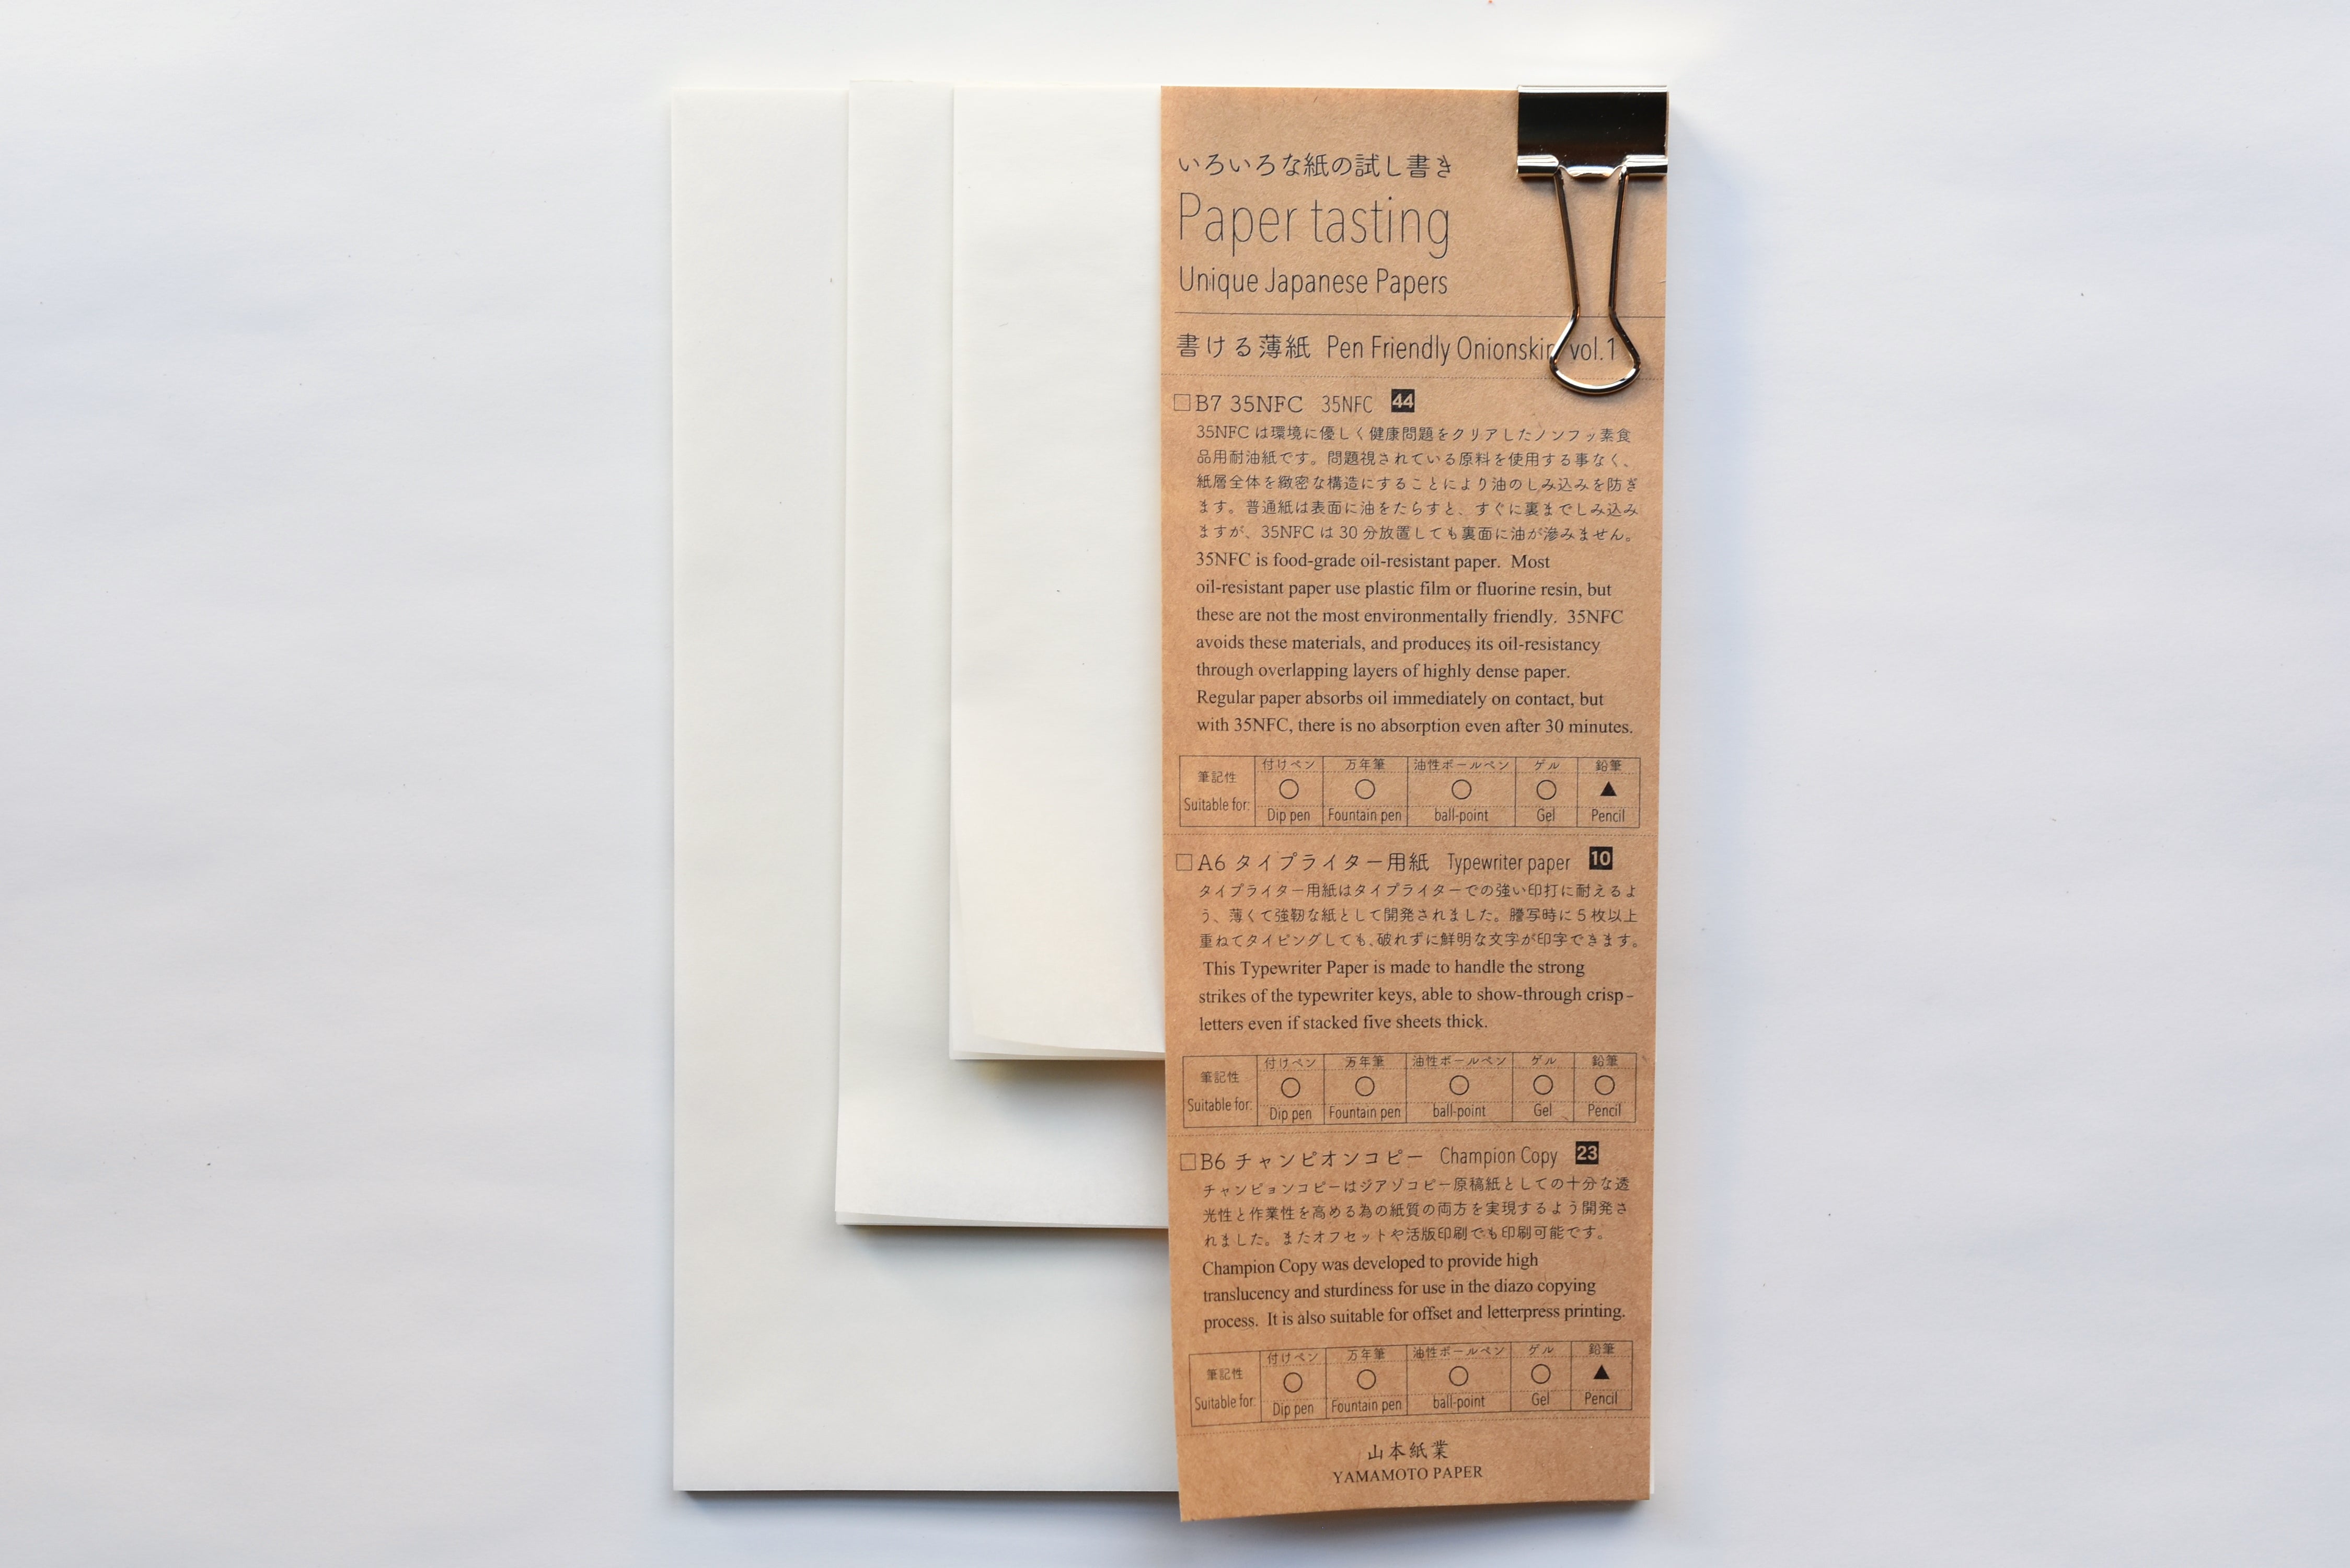 いろいろな紙の試し書き
Paper tasting
Unique Japanese Papers
書ける薄紙 Pen Friendly Onionskin vol.1
□B7 35NFC 35NFC 44
35NFC は環境に優しく健康問題をクリアしたノンフッ素食
品用耐油紙です。問題視されている原料を使用する事なく、
紙層全体を緻密な構造にすることにより油のしみ込みを防ぎ
ます。普通紙は表面に油をたらすと、すぐに裏までしみ込み
ますが、35NFC は 30 分放置しても裏面に油が滲みません。
35NFC is food-grade oil-resistant paper. Most
oil-resistant paper use plastic film or fluorine resin, but
these are not the most environmentally friendly. 35NFC
avoids these materials, and produces its oil-resistancy
through overlapping layers of highly dense paper.
Regular paper absorbs oil immediately on contact, but
with 35NFC, there is no absorption even after 30 minutes.
筆記性 付けペン 万年筆 油性ボールペン ゲル 鉛筆
○ ○ ○ ○ ▲
Suitable for: Dip pen Fountain pen ball-point Gel Pencil
□A6 タイプライター用紙 Typewriter paper 10
タイプライター用紙はタイプライターでの強い印打に耐えるよ
う、薄くて強靭な紙として開発されました。謄写時に 5 枚以上
重ねてタイピングしても、破れずに鮮明な文字が印字できます。
This Typewriter Paper is made to handle the strong
strikes of the typewriter keys, able to show-through crisp-
letters even if stacked five sheets thick.
筆記性 付けペン 万年筆 油性ボールペン ゲル 鉛筆
○ ○ ○ ○ ○
Suitable for: Dip pen Fountain pen ball-point Gel Pencil
□B6 チャンピオンコピー Champion Copy 23
チャンピョンコピーはジアゾコピー原稿紙としての十分な透
光性と作業性を高める為の紙質の両方を実現するよう開発さ
れました。またオフセットや活版印刷でも印刷可能です。
Champion Copy was developed to provide high
translucency and sturdiness for use in the diazo copying
process. It is also suitable for offset and letterpress printing.
筆記性 付けペン 万年筆 油性ボールペン ゲル 鉛筆
○ ○ ○ ○ ▲
Suitable for: Dip pen Fountain pen ball-point Gel Pencil
山本紙業
YAMAMOTO PAPER